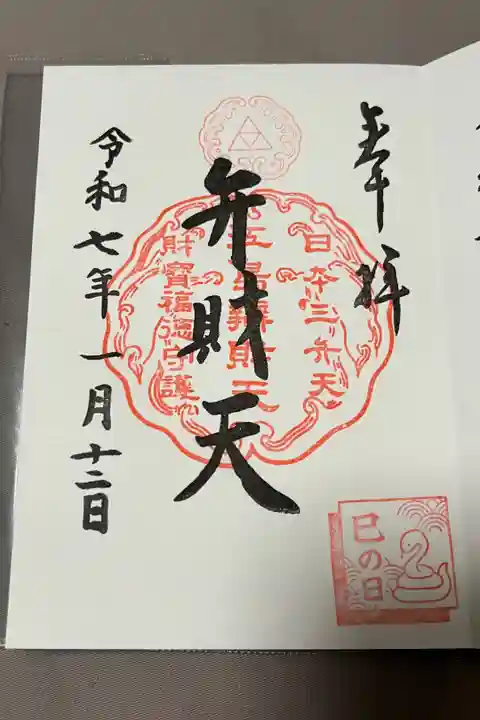 奉拝
日本三弁天
弁財天
財寶福徳守護
令和七年一月十二日
巳の日